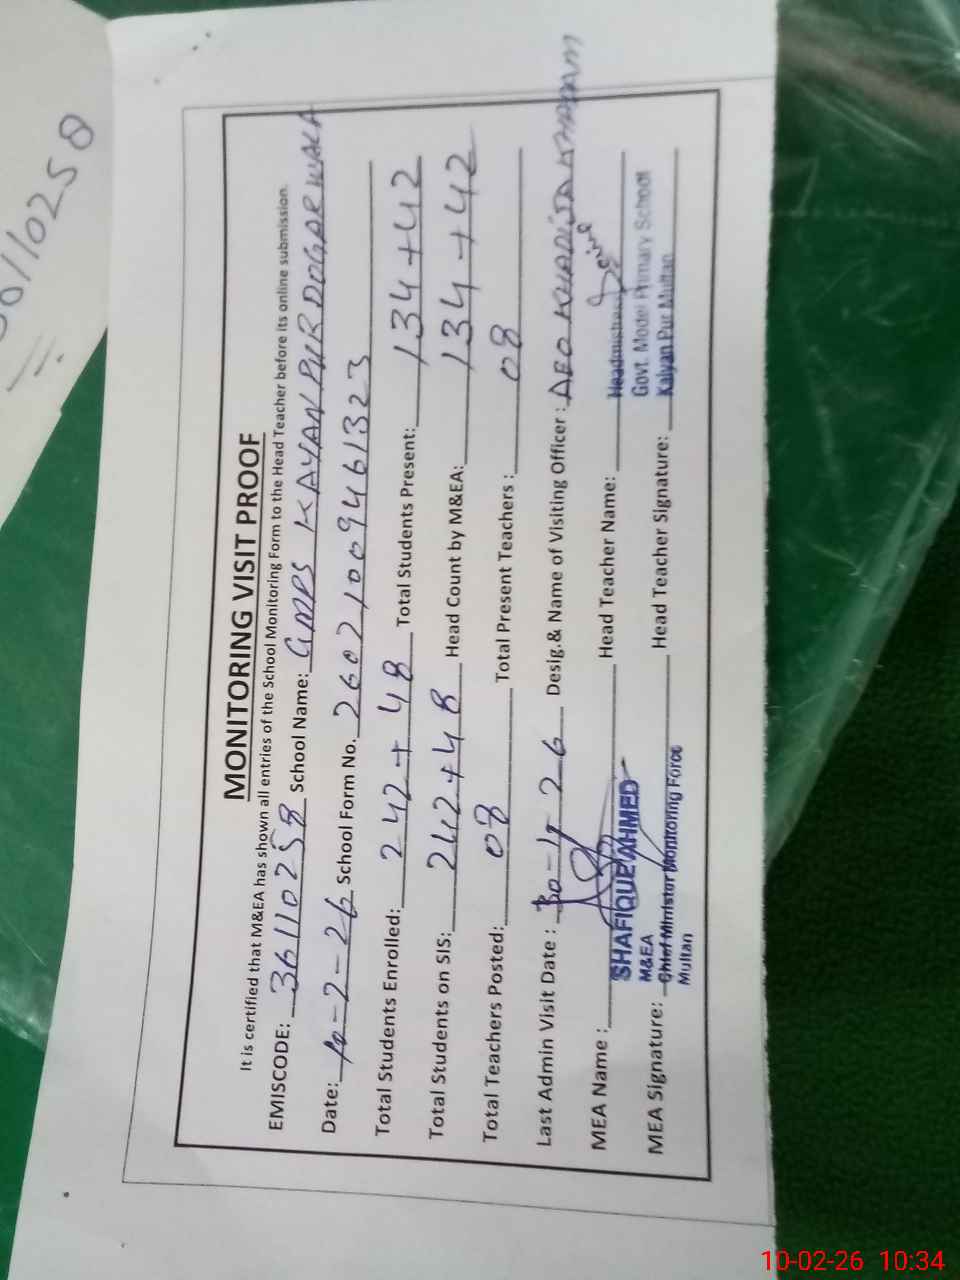 MONITORING VISIT PROOF
It is certified that M&EA has shown all entries of the School Monitoring Form to the Head Teacher before its online submission.
EMISCODE: 36110258 School Name: GMPS KAYANPUR DOGAR WALA
Date: 10-2-26 School Form No. 26021009461323
Total Students Enrolled: 242 + 48 Total Students Present: 134 + 42
Total Students on SIS: 242 + 48 Head Count by M&EA: 134 + 42
Total Teachers Posted: 08 Total Present Teachers : 08
Last Admin Visit Date : 30-1-26 Desig.& Name of Visiting Officer : AEO KHADIJA KHADAM
MEA Name : Head Teacher Name:
MEA Signature: Head Teacher Signature:
SHAFIQUE AHMED
M&EA
Chief Minister Monitoring Force
Multan
Headmistress
Govt. Model Primary School
Kalyan Pur Multan
110258
10-02-26 10:34